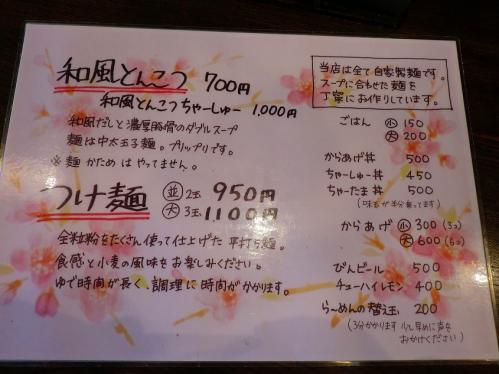 和風とんこつ 700円
和風とんこつちゃーしゅー 1,000円
和風だしと濃厚豚骨のダブルスープ
麺は中太玉子麺。プリップリです。
※麺かためはやってません。
つけ麺 並 2玉 950円
大 3玉 1,100円
全粒粉をたくさん使って仕上げた平打ち麺。
食感と小麦の風味をお楽しみください。
ゆで時間が長く、調理に時間がかかります。
当店は全て自家製麺です。
スープに合わせた麺を
丁寧にお作りしています。
ごはん 小 150
大 200
からあげ丼 500
ちゃーしゅー丼 450
ちゃーたま丼 500
(味玉が半分乗ってます)
からあげ 小 300 (3コ)
大 600 (6コ)
びんビール 500
チューハイレモン 400
らーめんの替え玉 200
(3分かかります 少し早めに声を
おかけください)